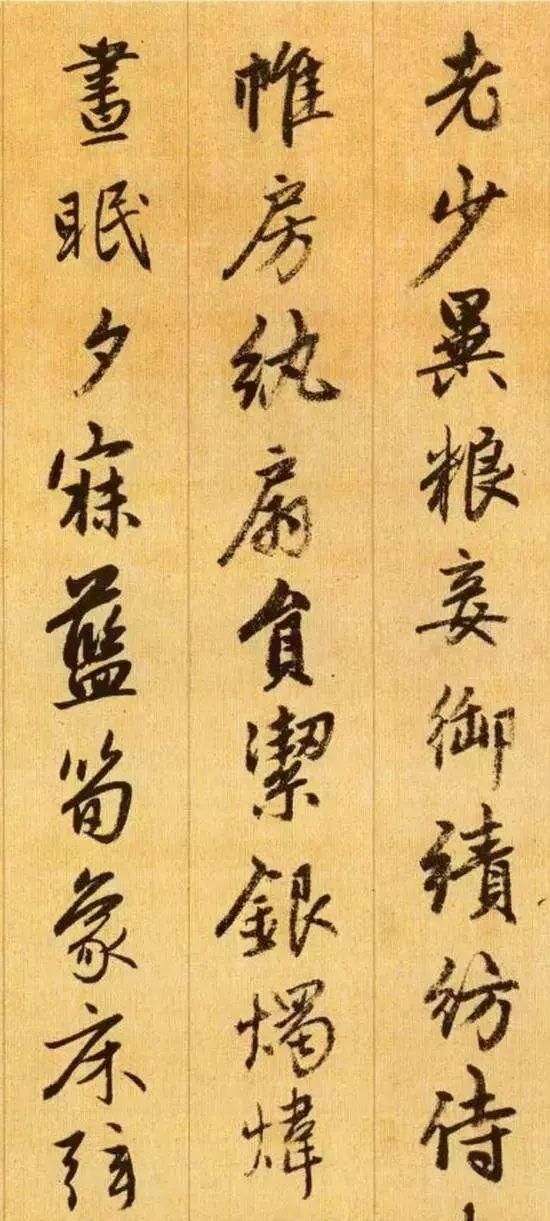 老少異粮妾御績紡侍
帷房紈扇員潔銀燭煒
晝眠夕寐藍笋象床弦